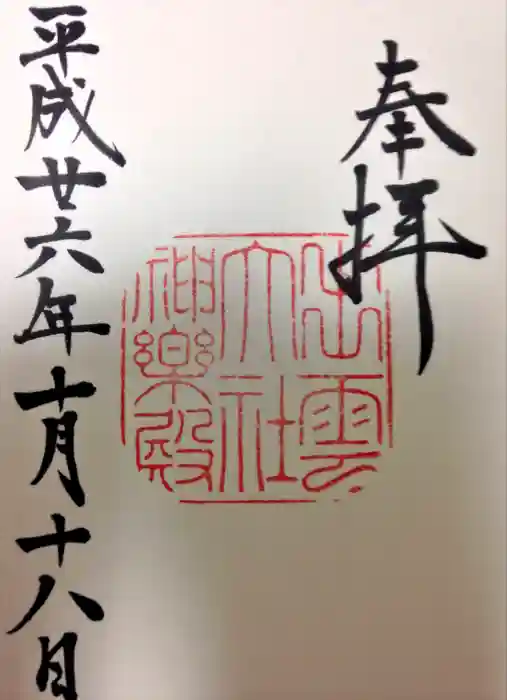 奉拝
出雲
大社
神楽殿
平成廿六年十月十八日